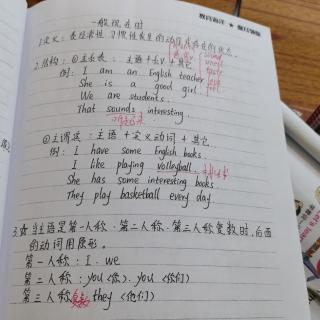 教育海洋 ★
一般现在时
1.定义：表反复性、习惯性发生的动作或存在的状态。
2.结构：①主系表：主语+be V+其它
例：I am an English teacher
She is a good girl.
We are students.
That sounds interesting
②主谓宾：主语+实义动词+其它
例：I have some English books
I like playing volleyball.
She has some interesting books
They play basketball every day
3. 当主语是第一人称、第二人称、第三人称复数时，后面
的动词用原形。
第一人称：I. we
第二人称：you〈你〉. you〈你们〉
第三人称复数 they〈他们〉